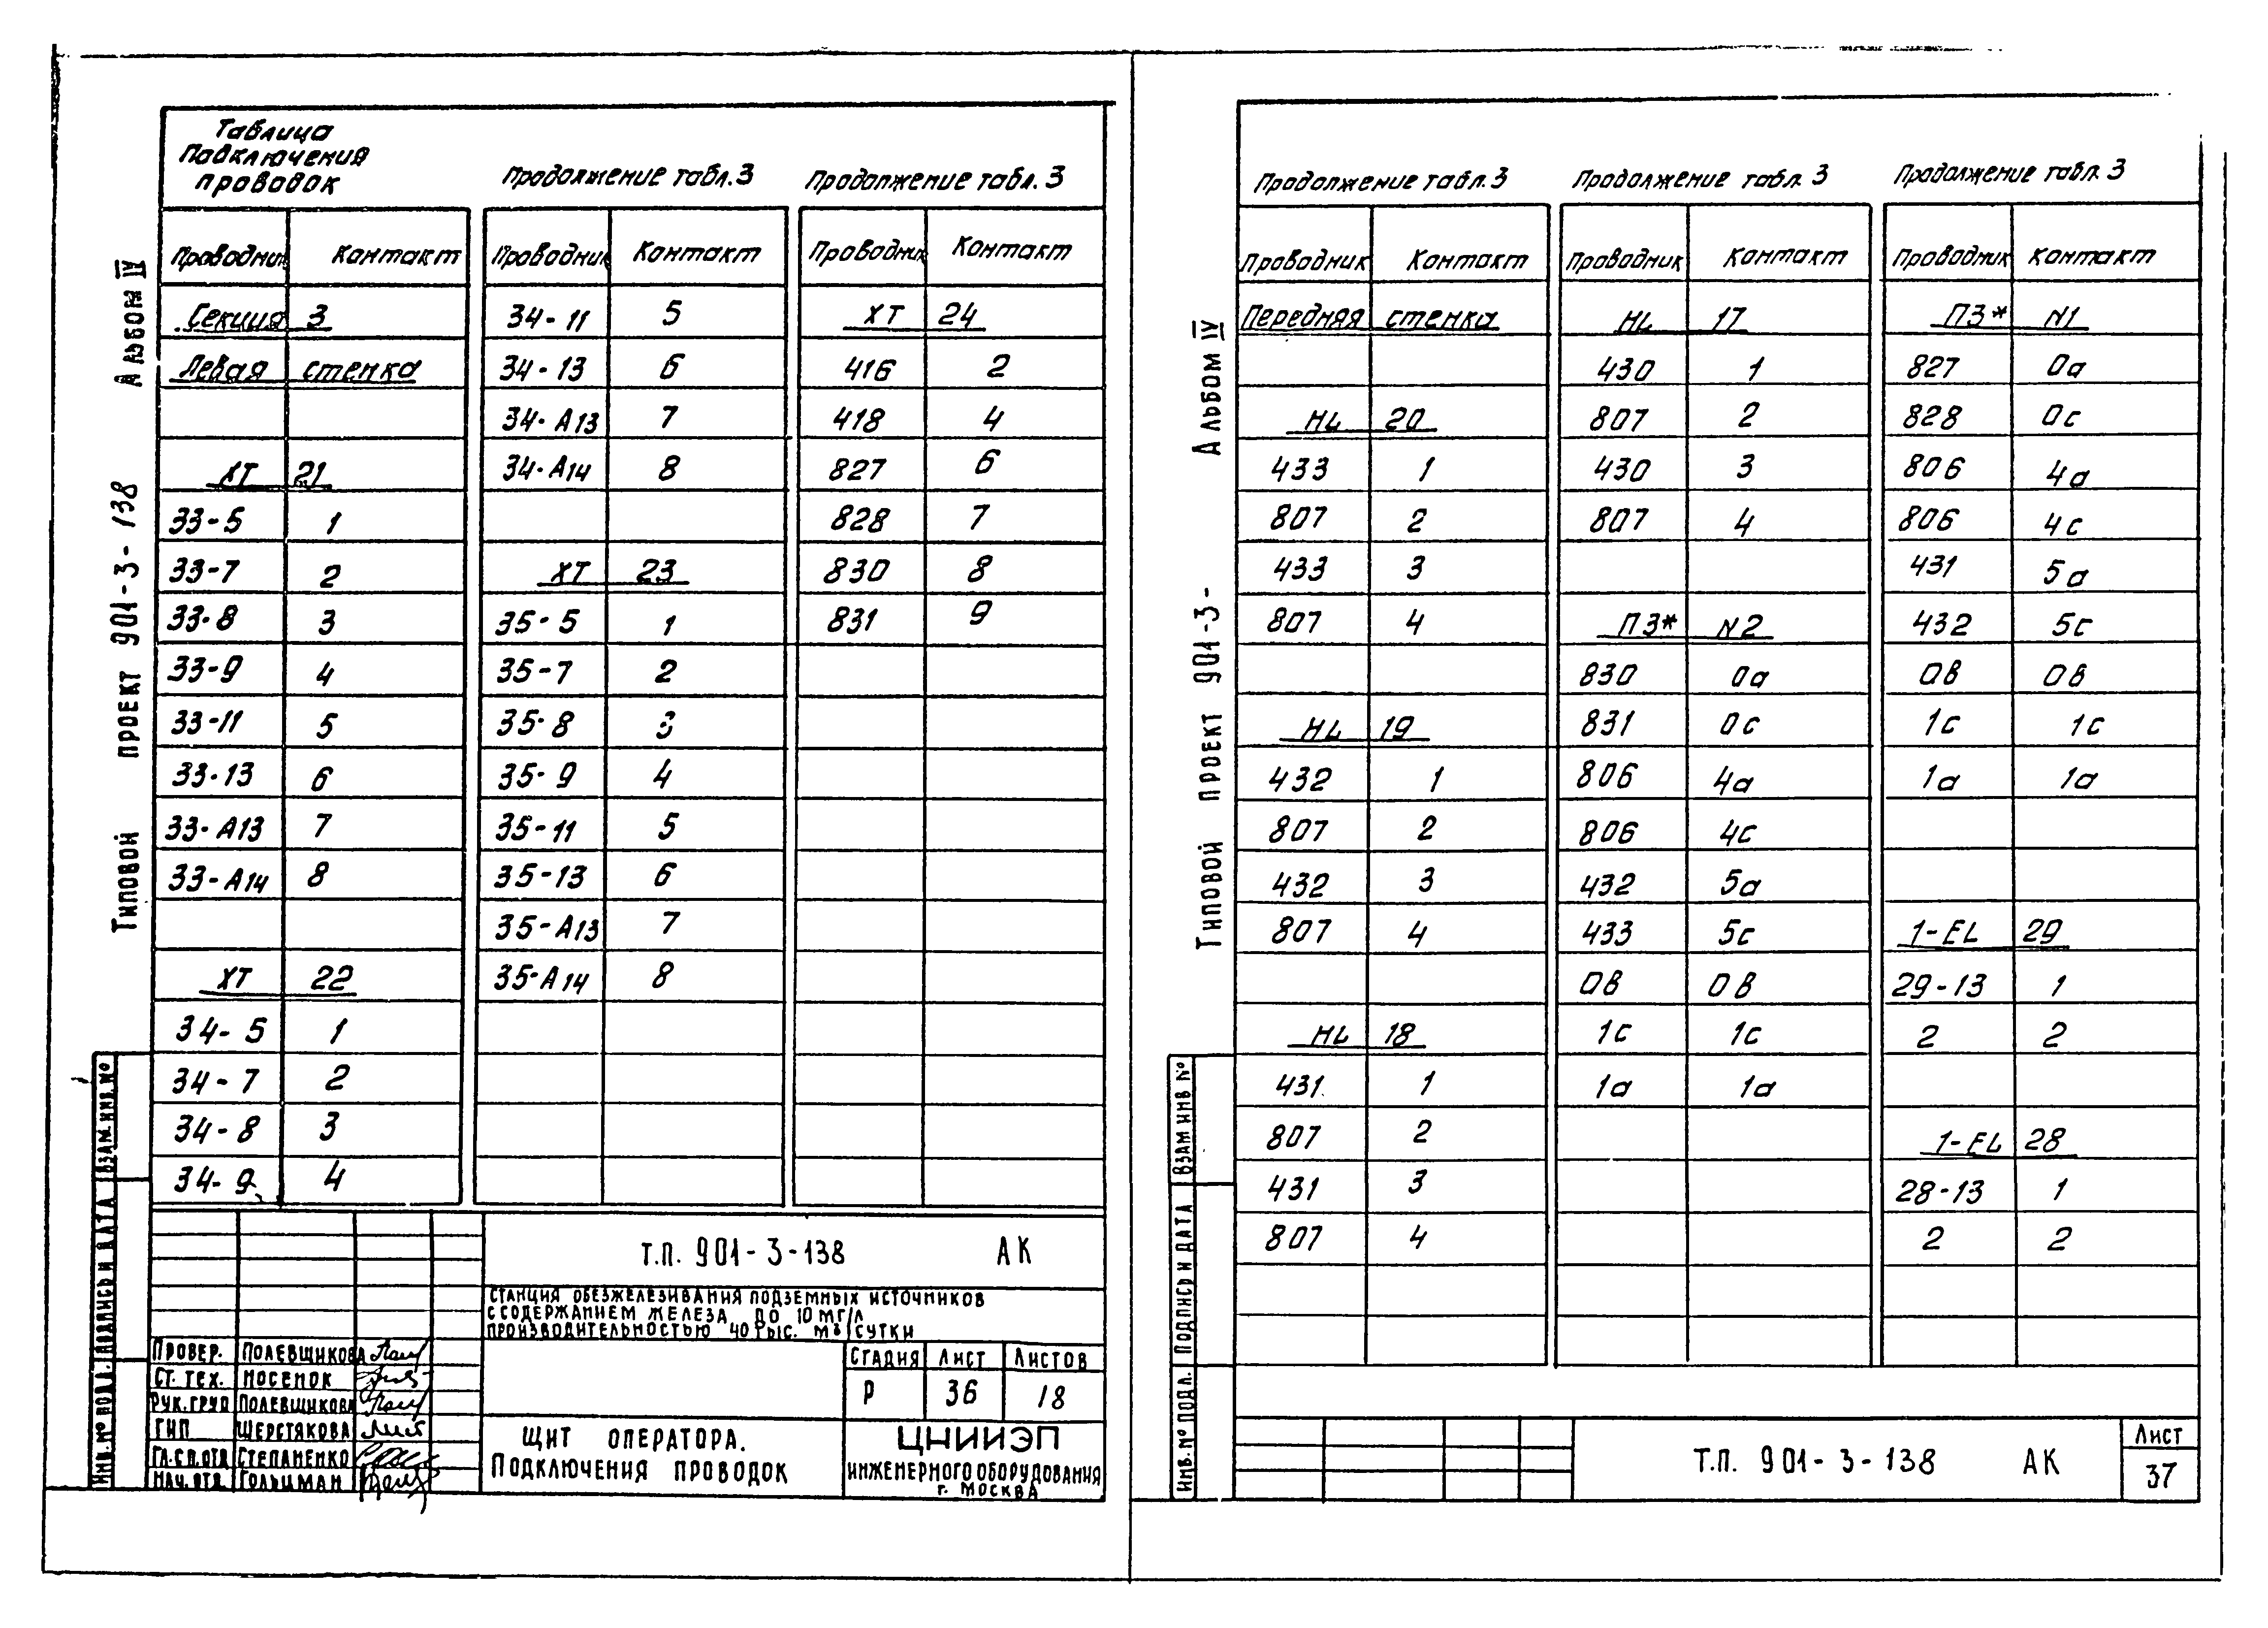 Таблица
Подключения
проводок
Продолжение табл. 3
Продолжение табл. 3
Проводник Контакт
Секция 3
Левая стенка
ХТ 21
33-5 1
33-7 2
33-8 3
33-9 4
33-11 5
33-13 6
33-А13 7
33-А14 8
ХТ 22
34-5 1
34-7 2
34-8 3
34-9 4
Проводник Контакт
34-11 5
34-13 6
34-А13 7
34-А14 8
ХТ 23
35-5 1
35-7 2
35-8 3
35-9 4
35-11 5
35-13 6
35-А13 7
35-А14 8
Проводник Контакт
ХТ 24
416 2
418 4
827 6
828 7
830 8
831 9
Типовой проект 901-3-138 Альбом IV
ИНВ. № ПОДЛ. ПОДПИСЬ И ДАТА ВЗАМ. ИНВ. №
Т.П. 901-3-138 АК
СТАНЦИЯ ОБЕЗЖЕЛЕЗИВАНИЯ ПОДЗЕМНЫХ ИСТОЧНИКОВ
С СОДЕРЖАНИЕМ ЖЕЛЕЗА ДО 10 МГ/Л
ПРОИЗВОДИТЕЛЬНОСТЬЮ 40 ТЫС. М3/СУТКИ
ПРОВЕР. ПОЛЕВЩИКОВА
СТ. ТЕХ. НОСЕНОК
РУК. ГРУП ПОЛЕВЩИКОВА
ГИП ШЕРСТЯКОВА
ГЛ.СП.ОТД СТЕПАНЕНКО
НАЧ. ОТД ГОЛЬЦМАН
СТАДИЯ ЛИСТ ЛИСТОВ
Р 36 18
ЩИТ ОПЕРАТОРА.
ПОДКЛЮЧЕНИЯ ПРОВОДОК
ЦНИИЭП
ИНЖЕНЕРНОГО ОБОРУДОВАНИЯ
г. МОСКВА
Продолжение табл. 3
Продолжение табл. 3
Продолжение табл. 3
Проводник Контакт
Передняя стенка
HL 20
433 1
807 2
433 3
807 4
HL 19
432 1
807 2
432 3
807 4
HL 18
431 1
807 2
431 3
807 4
Проводник Контакт
HL 17
430 1
807 2
430 3
807 4
ПЗ* N2
830 0а
831 0с
806 4а
806 4с
432 5а
433 5с
0В 0В
1с 1с
1а 1а
Проводник Контакт
ПЗ* N1
827 0а
828 0с
806 4а
806 4с
431 5а
432 5с
0В 0В
1с 1с
1а 1а
1-EL 29
29-13 1
2 2
1-EL 28
28-13 1
2 2
Типовой проект 901-3- Альбом IV
ИНВ. № ПОДЛ. ПОДПИСЬ И ДАТА ВЗАМ ИНВ №
Т.П. 901-3-138 АК
Лист
37